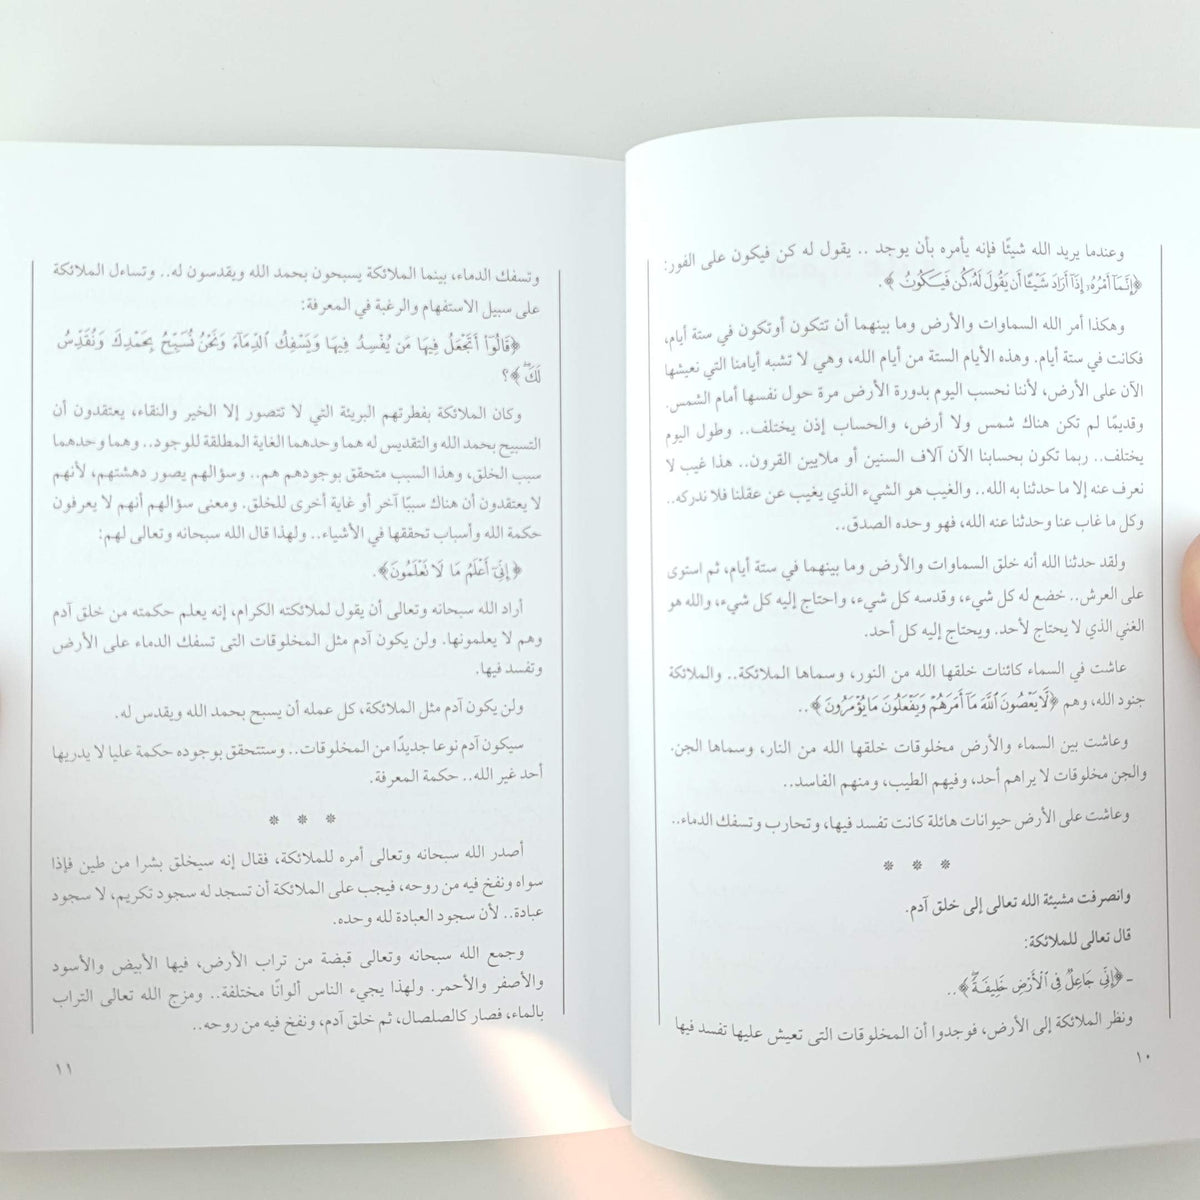 وعندما يريد الله شيئًا فإنه يأمره بأن يوجد .. يقول له كن فيكون على الفور:
﴿إِنَّمَآ أَمْرُهُۥٓ إِذَآ أَرَادَ شَيْـًٔا أَن يَقُولَ لَهُۥ كُن فَيَكُونُ ﴾.
وهكذا أمر الله السماوات والأرض وما بينهما أن تتكون أوتكون في ستة أيام،
فكانت في ستة أيام. وهذه الأيام الستة من أيام الله، وهي لا تشبه أيامنا التي نعيشها
الآن على الأرض، لأننا نحسب اليوم بدورة الأرض مرة حول نفسها أمام الشمس.
وقديمًا لم تكن هناك شمس ولا أرض، والحساب إذن يختلف.. وطول اليوم
يختلف.. ربما تكون بحسابنا الآن آلاف السنين أو ملايين القرون.. هذا غيب لا
نعرف عنه إلا ما حدثنا به الله.. والغيب هو الشيء الذي يغيب عن عقلنا فلا ندركه..
وكل ما غاب عنا وحدثنا عنه الله، فهو وحده الصدق..
ولقد حدثنا الله أنه خلق السماوات والأرض وما بينهما في ستة أيام، ثم استوى
على العرش.. خضع له كل شيء، وقدسه كل شيء، واحتاج إليه كل شيء، والله هو
الغني الذي لا يحتاج لأحد. ويحتاج إليه كل أحد.
عاشت في السماء كائنات خلقها الله من النور، وسماها الملائكة.. والملائكة
جنود الله، وهم ﴿لَّا يَعْصُونَ ٱللَّهَ مَآ أَمَرَهُمْ وَيَفْعَلُونَ مَا يُؤْمَرُونَ﴾..
وعاشت بين السماء والأرض مخلوقات خلقها الله من النار، وسماها الجن.
والجن مخلوقات لا يراهم أحد، وفيهم الطيب، ومنهم الفاسد..
وعاشت على الأرض حيوانات هائلة كانت تفسد فيها، وتحارب وتسفك الدماء..
* * *
وانصرفت مشيئة الله تعالى إلى خلق آدم.
قال تعالى للملائكة:
ـ ﴿إِنِّى جَاعِلٌ فِى ٱلْأَرْضِ خَلِيفَةً ۖ﴾..
ونظر الملائكة إلى الأرض، فوجدوا أن المخلوقات التى تعيش عليها تفسد فيها
١٠
وتسفك الدماء، بينما الملائكة يسبحون بحمد الله ويقدسون له.. وتساءل الملائكة
على سبيل الاستفهام والرغبة في المعرفة:
﴿قَالُوٓا۟ أَتَجْعَلُ فِيهَا مَن يُفْسِدُ فِيهَا وَيَسْفِكُ ٱلدِّمَآءَ وَنَحْنُ نُسَبِّحُ بِحَمْدِكَ وَنُقَدِّسُ
لَكَ ۖ﴾؟
وكان الملائكة بفطرتهم البريئة التي لا تتصور إلا الخير والنقاء، يعتقدون أن
التسبيح بحمد الله والتقديس له هما وحدهما الغاية المطلقة للوجود.. وهما وحدهما
سبب الخلق، وهذا السبب متحقق بوجودهم هم.. وسؤالهم يصور دهشتهم، لأنهم
لا يعتقدون أن هناك سببًا آخر أو غاية أخرى للخلق. ومعنى سؤالهم أنهم لا يعرفون
حكمة الله وأسباب تحققها في الأشياء.. ولهذا قال الله سبحانه وتعالى لهم:
﴿إِنِّىٓ أَعْلَمُ مَا لَا تَعْلَمُونَ﴾.
أراد الله سبحانه وتعالى أن يقول لملائكته الكرام، إنه يعلم حكمته من خلق آدم
وهم لا يعلمونها. ولن يكون آدم مثل المخلوقات التى تسفك الدماء على الأرض
وتفسد فيها.
ولن يكون آدم مثل الملائكة، كل عمله أن يسبح بحمد الله ويقدس له.
سيكون آدم نوعا جديدًا من المخلوقات.. وستتحقق بوجوده حكمة عليا لا يدريها
أحد غير الله.. حكمة المعرفة.
* * *
أصدر الله سبحانه وتعالى أمره للملائكة، فقال إنه سيخلق بشرا من طين فإذا
سواه ونفخ فيه من روحه، فيجب على الملائكة أن تسجد له سجود تكريم، لا سجود
عبادة.. لأن سجود العبادة لله وحده.
وجمع الله سبحانه وتعالى قبضة من تراب الأرض، فيها الأبيض والأسود
والأصفر والأحمر. ولهذا يجيء الناس ألوانًا مختلفة.. ومزج الله تعالى التراب
بالماء، فصار كالصلصال، ثم خلق آدم، ونفخ فيه من روحه..
١١